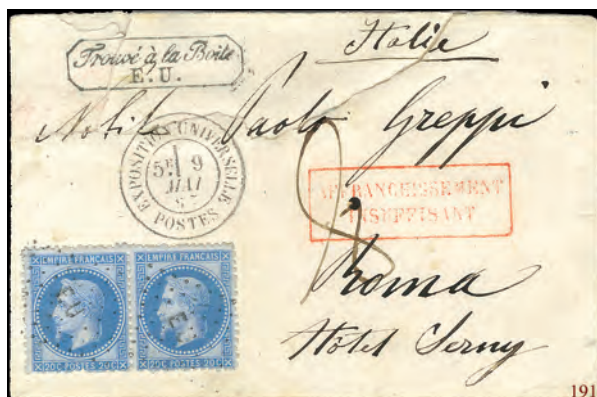 Trouvé à la Boite
E.U.
Italie
Nobile Paolo Greppi
EXPOSITION UNIVERSELLE
5E 9
MAI
POSTES
AFFRANCHISSEMENT
INSUFFISANT
Roma
Hôtel Serny
EMPIRE FRANÇAIS
EU
20C POSTES 20C
EMPIRE FRANÇAIS
E
20C POSTES 20C
191